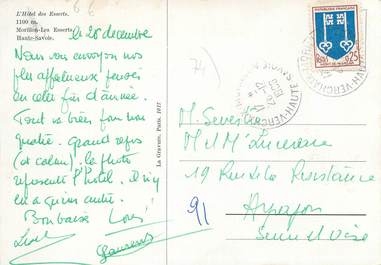 L'Hôtel des Esserts.
1100 m.
Morillon-Les Esserts
Haute-Savoie.
le 26 décembre
Nous vous envoyons nos
plus affectueuses pensées
en cette fin d'année.
Tout va bien pour nos
quatre. Grand repos
(et calme). la photo
représente l'hôtel. il n'y
en a qu'un autre.
Bons baisers
La Gravure, Paris. 1957
REPUBLIQUE FRANÇAISE
0,25
MONT-DE-MARSAN
HAUTE SAVOIE
M. Sevestre
M et Me
19 Rue de la Résistance
91 Arpajon
Seine et Oise